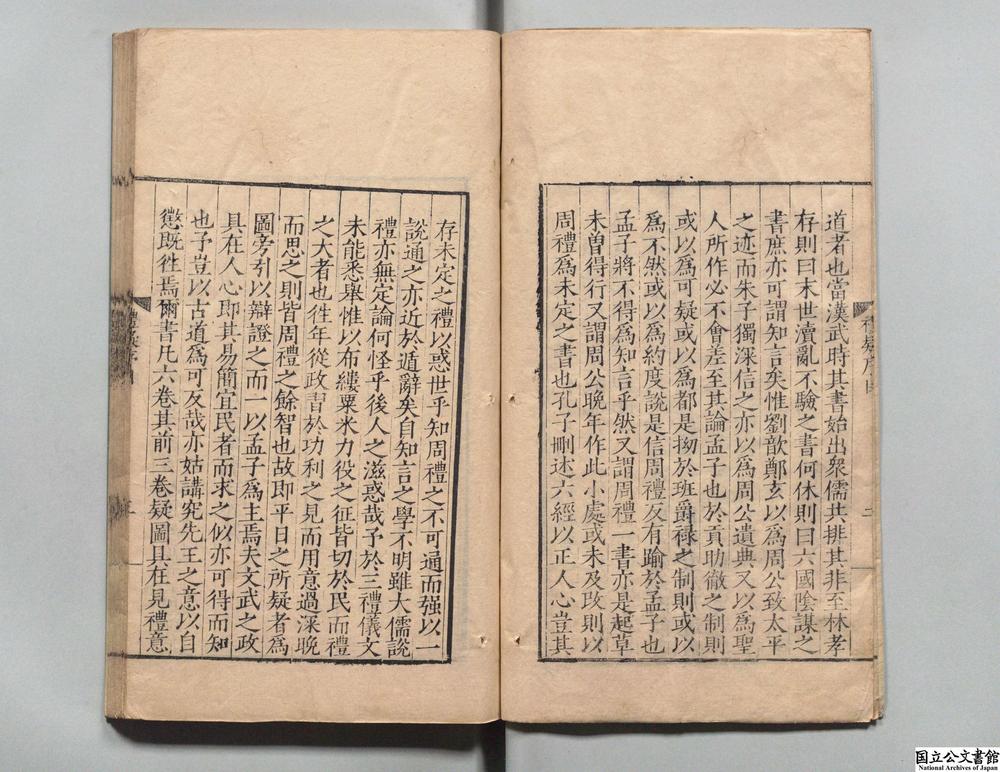 道者也當漢武時其書始出衆儒共排其非至林孝
存則曰末世瀆亂不驗之書何休則曰六國陰謀之
書庶亦可謂知言矣惟劉歆鄭玄以爲周公致太平
之迹而朱子獨深信之亦以爲周公遺典又以爲聖
人所作必不會差至其論孟子也於貢助徹之制則
或以爲可疑或以爲都是拗於班爵祿之制則或以
爲不然或以爲約度說是信周禮反有踰於孟子也
孟子將不得爲知言乎然又謂周禮一書亦是起草
未曽得行又謂周公晚年作此小處或未及改則以
周禮爲未定之書也孔子刪述六經以正人心豈其
存未定之禮以惑世乎知周禮之不可通而强以一
說通之亦近於遁辭矣自知言之學不明雖大儒說
禮亦無定論何怪乎後人之滋惑哉予於三禮儀文
未能悉舉惟以布縷粟米力役之征皆切於民而禮
之大者也徃年從政習於功利之見而用意過深晚
而思之則皆周禮之餘智也故即平日之所疑者爲
圖旁引以辯證之而一以孟子爲主焉夫文武之政
具在人心即其易簡宜民者而求之似亦可得而知
也予豈以古道爲可反哉亦姑講究先王之意以自
懲既徃焉爾書凡六卷其前三卷疑圖具在見禮意
国立公文書館
National Archives of Japan